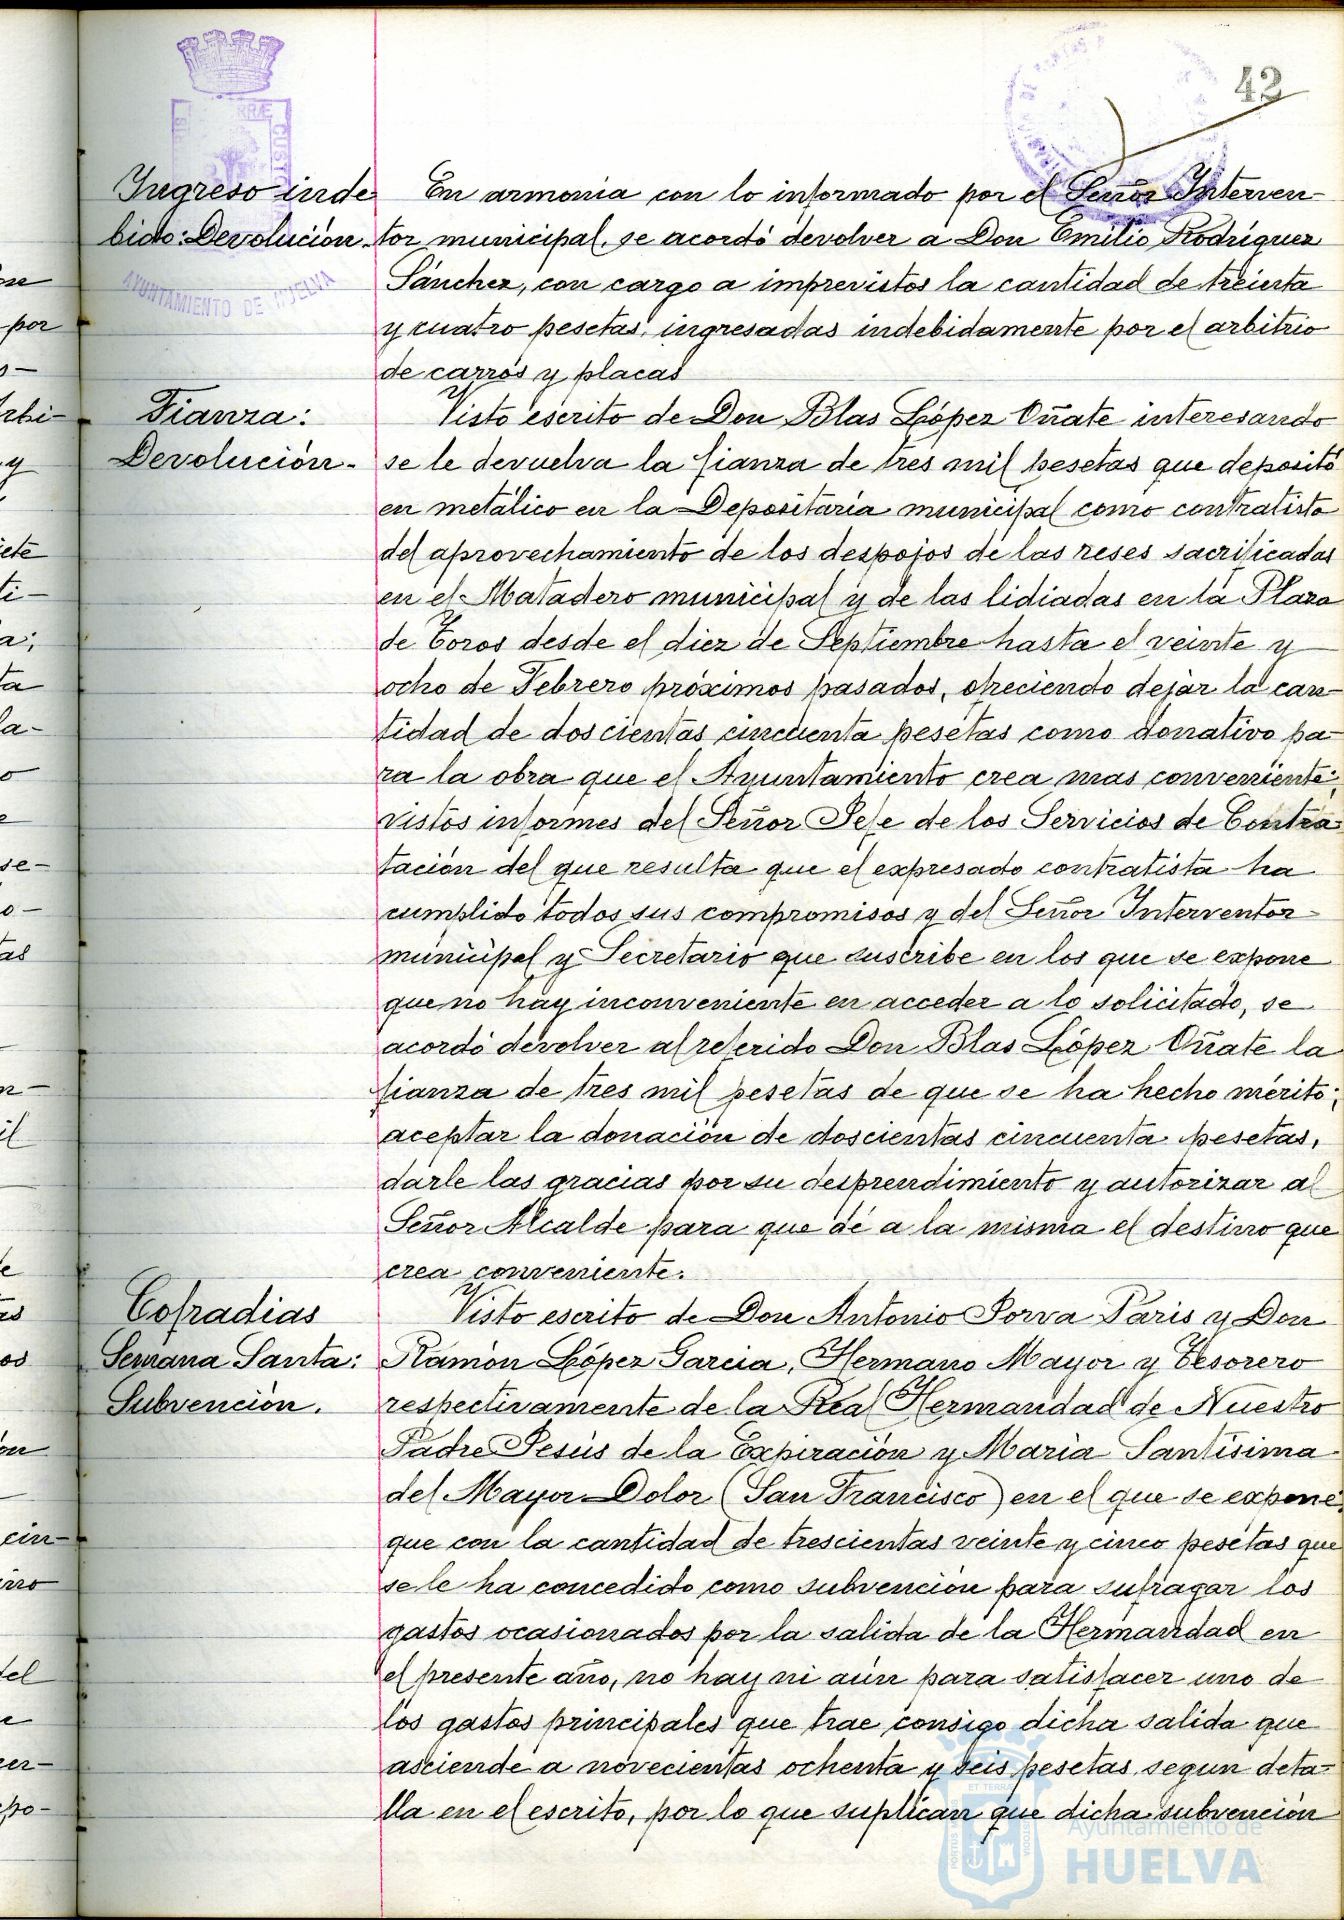 42
Ingreso inde
bido: Devolución.
En armonía con lo informado por el Señor Interven-
tor municipal, se acordó devolver a Don Emilio Rodríguez
Sánchez, con cargo a imprevistos la cantidad de treinta
y cuatro pesetas, ingresadas indebidamente por el arbitrio
de carros y placas
Fianza:
Devolución-
Visto escrito de Don Blas López Oñate interesando
se le devuelva la fianza de tres mil pesetas que depositó
en metálico en la Depositaría municipal como contratista
del aprovechamiento de los despojos de las reses sacrificadas
en el Matadero municipal y de las lidiadas en la Plaza
de Toros desde el diez de Septiembre hasta el veinte y
ocho de Febrero próximos pasados, ofreciendo dejar la can-
tidad de doscientas cincuenta pesetas como donativo pa-
ra la obra que el Ayuntamiento crea mas conveniente;
vistos informes del Señor Jefe de los Servicios de Contra-
tación del que resulta que el expresado contratista ha
cumplido todos sus compromisos y del Señor Interventor
municipal y Secretario que suscribe en los que se expone
que no hay inconveniente en acceder a lo solicitado, se
acordó devolver al referido Don Blas López Oñate la
fianza de tres mil pesetas de que se ha hecho mérito;
aceptar la donación de doscientas cincuenta pesetas,
darle las gracias por su desprendimiento y autorizar al
Señor Alcalde para que dé a la misma el destino que
crea conveniente.
Cofradias
Semana Santa:
Subvención.
Visto escrito de Don Antonio Jorva Paris y Don
Ramón López Garcia, Hermano Mayor y Tesorero
respectivamente de la Real Hermandad de Nuestro
Padre Jesús de la Expiración y Maria Santísima
del Mayor Dolor (San Francisco) en el que se expone
que con la cantidad de trescientas veinte y cinco pesetas que
se le ha concedido como subvención para sufragar los
gastos ocasionados por la salida de la Hermandad en
el presente año, no hay ni aún para satisfacer uno de
los gastos principales que trae consigo dicha salida que
asciende a novecientas ochenta y seis pesetas segun deta-
lla en el escrito, por lo que suplican que dicha subvención
AYUNTAMIENTO DE HUELVA
Ayuntamiento de
HUELVA